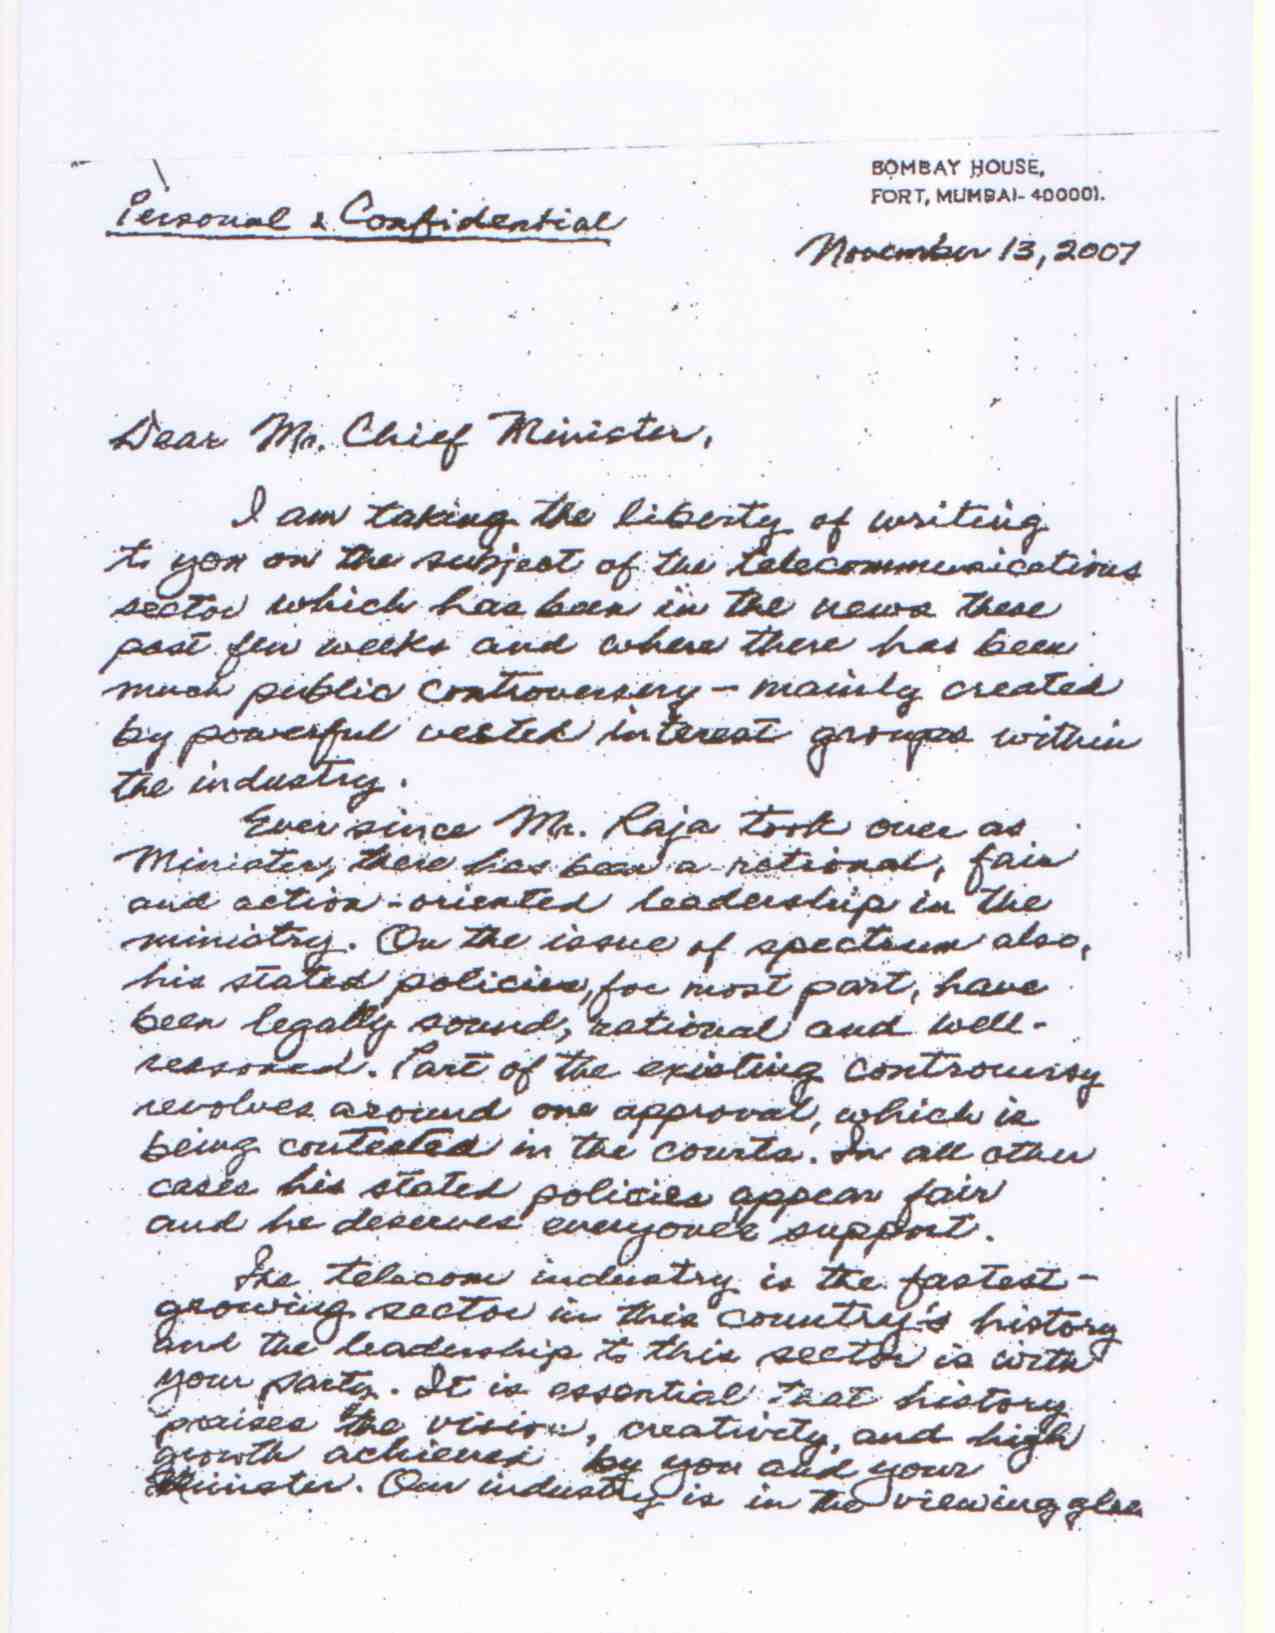 BOMBAY HOUSE,
FORT, MUMBAI- 400001.
Personal & Confidential
November 13, 2007
Dear Mr. Chief Minister,
I am taking the liberty of writing
to you on the subject of the telecommunications
sector which has been in the news these
past few weeks and where there has been
much public controversery - mainly created
by powerful vested interest groups within
the industry.
Ever since Mr. Raja took over as
Minister, there has been a rational, fair
and action-oriented leadership in the
ministry. On the issue of spectrum also,
his stated policies, for most part, have
been legally sound, rational and well-
reasoned. Part of the existing controversy
revolves around one approval, which is
being contested in the courts. In all other
cases his stated policies appear fair
and he deserves everyone's support.
The telecom industry is the fastest-
growing sector in this country's history
and the leadership to this sector is with
your party. It is essential that history
praises the vision, creativity, and high
growth achieved by you and your
Minister. Our industry is in the viewing glass